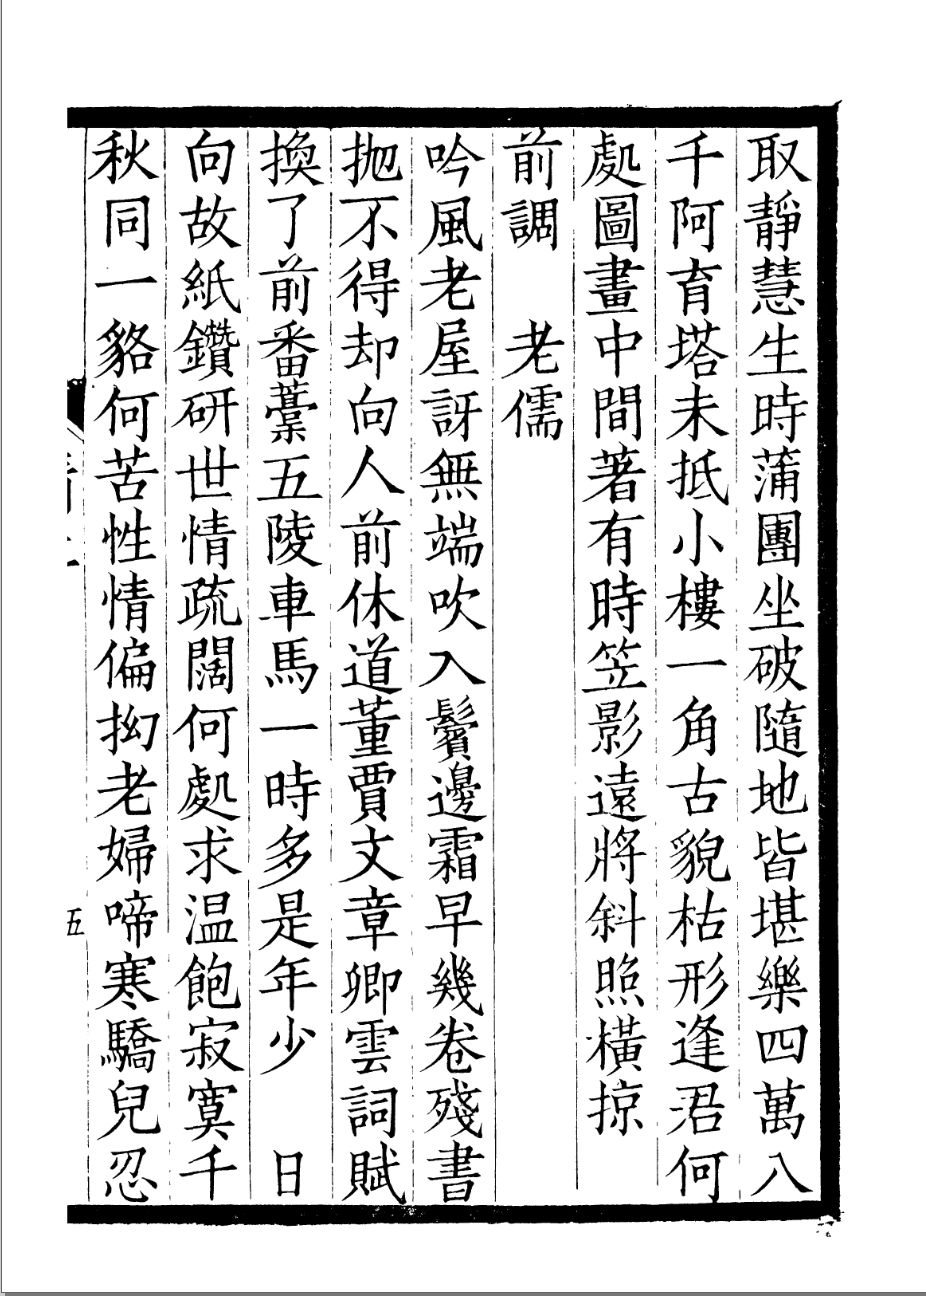 取靜慧生時蒲團坐破隨地皆堪樂四萬八
千阿育塔未抵小樓一角古貌枯形逢君何
處圖畫中間著有時笠影遠將斜照橫掠
前調　老儒
吟風老屋訝無端吹入鬢邊霜早幾卷殘書
拋不得却向人前休道董賈文章卿雲詞賦
換了前番藁五陵車馬一時多是年少　日
向故紙鑽研世情疏闊何處求温飽寂寞千
秋同一貉何苦性情偏拗老婦啼寒驕兒忍
五